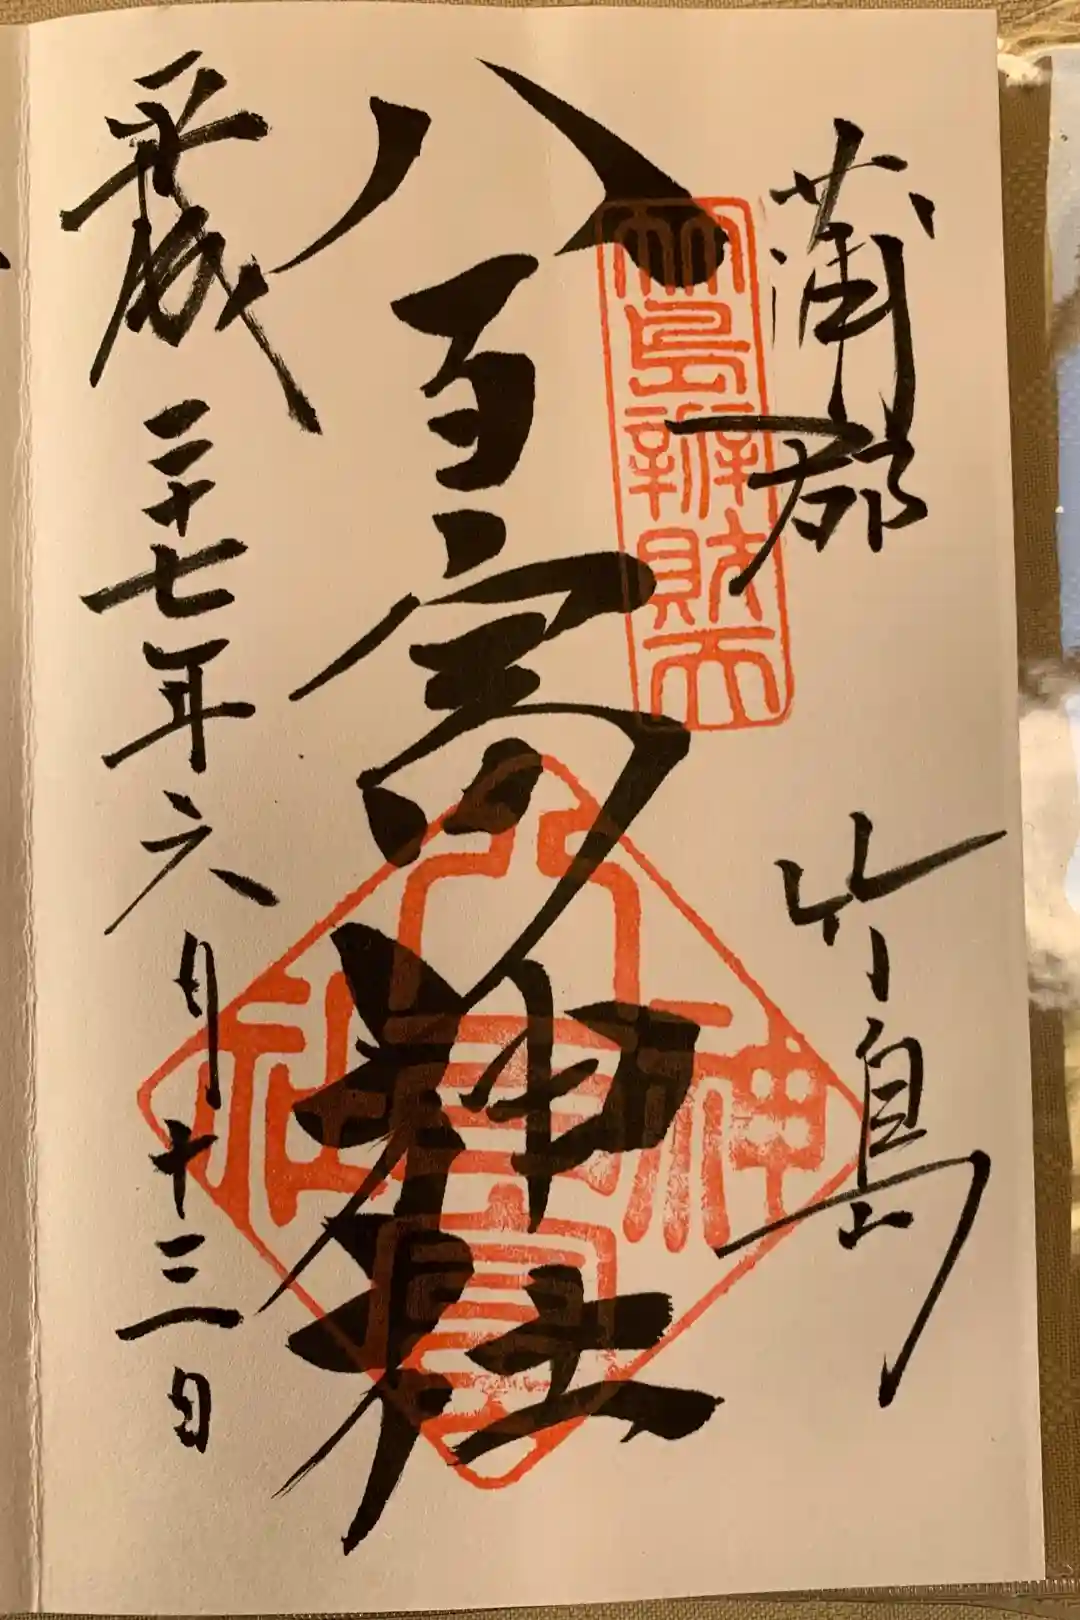 蒲郡 竹島
竹島辨財天
八百富神社
八百富神社
平成二十七年六月十三日